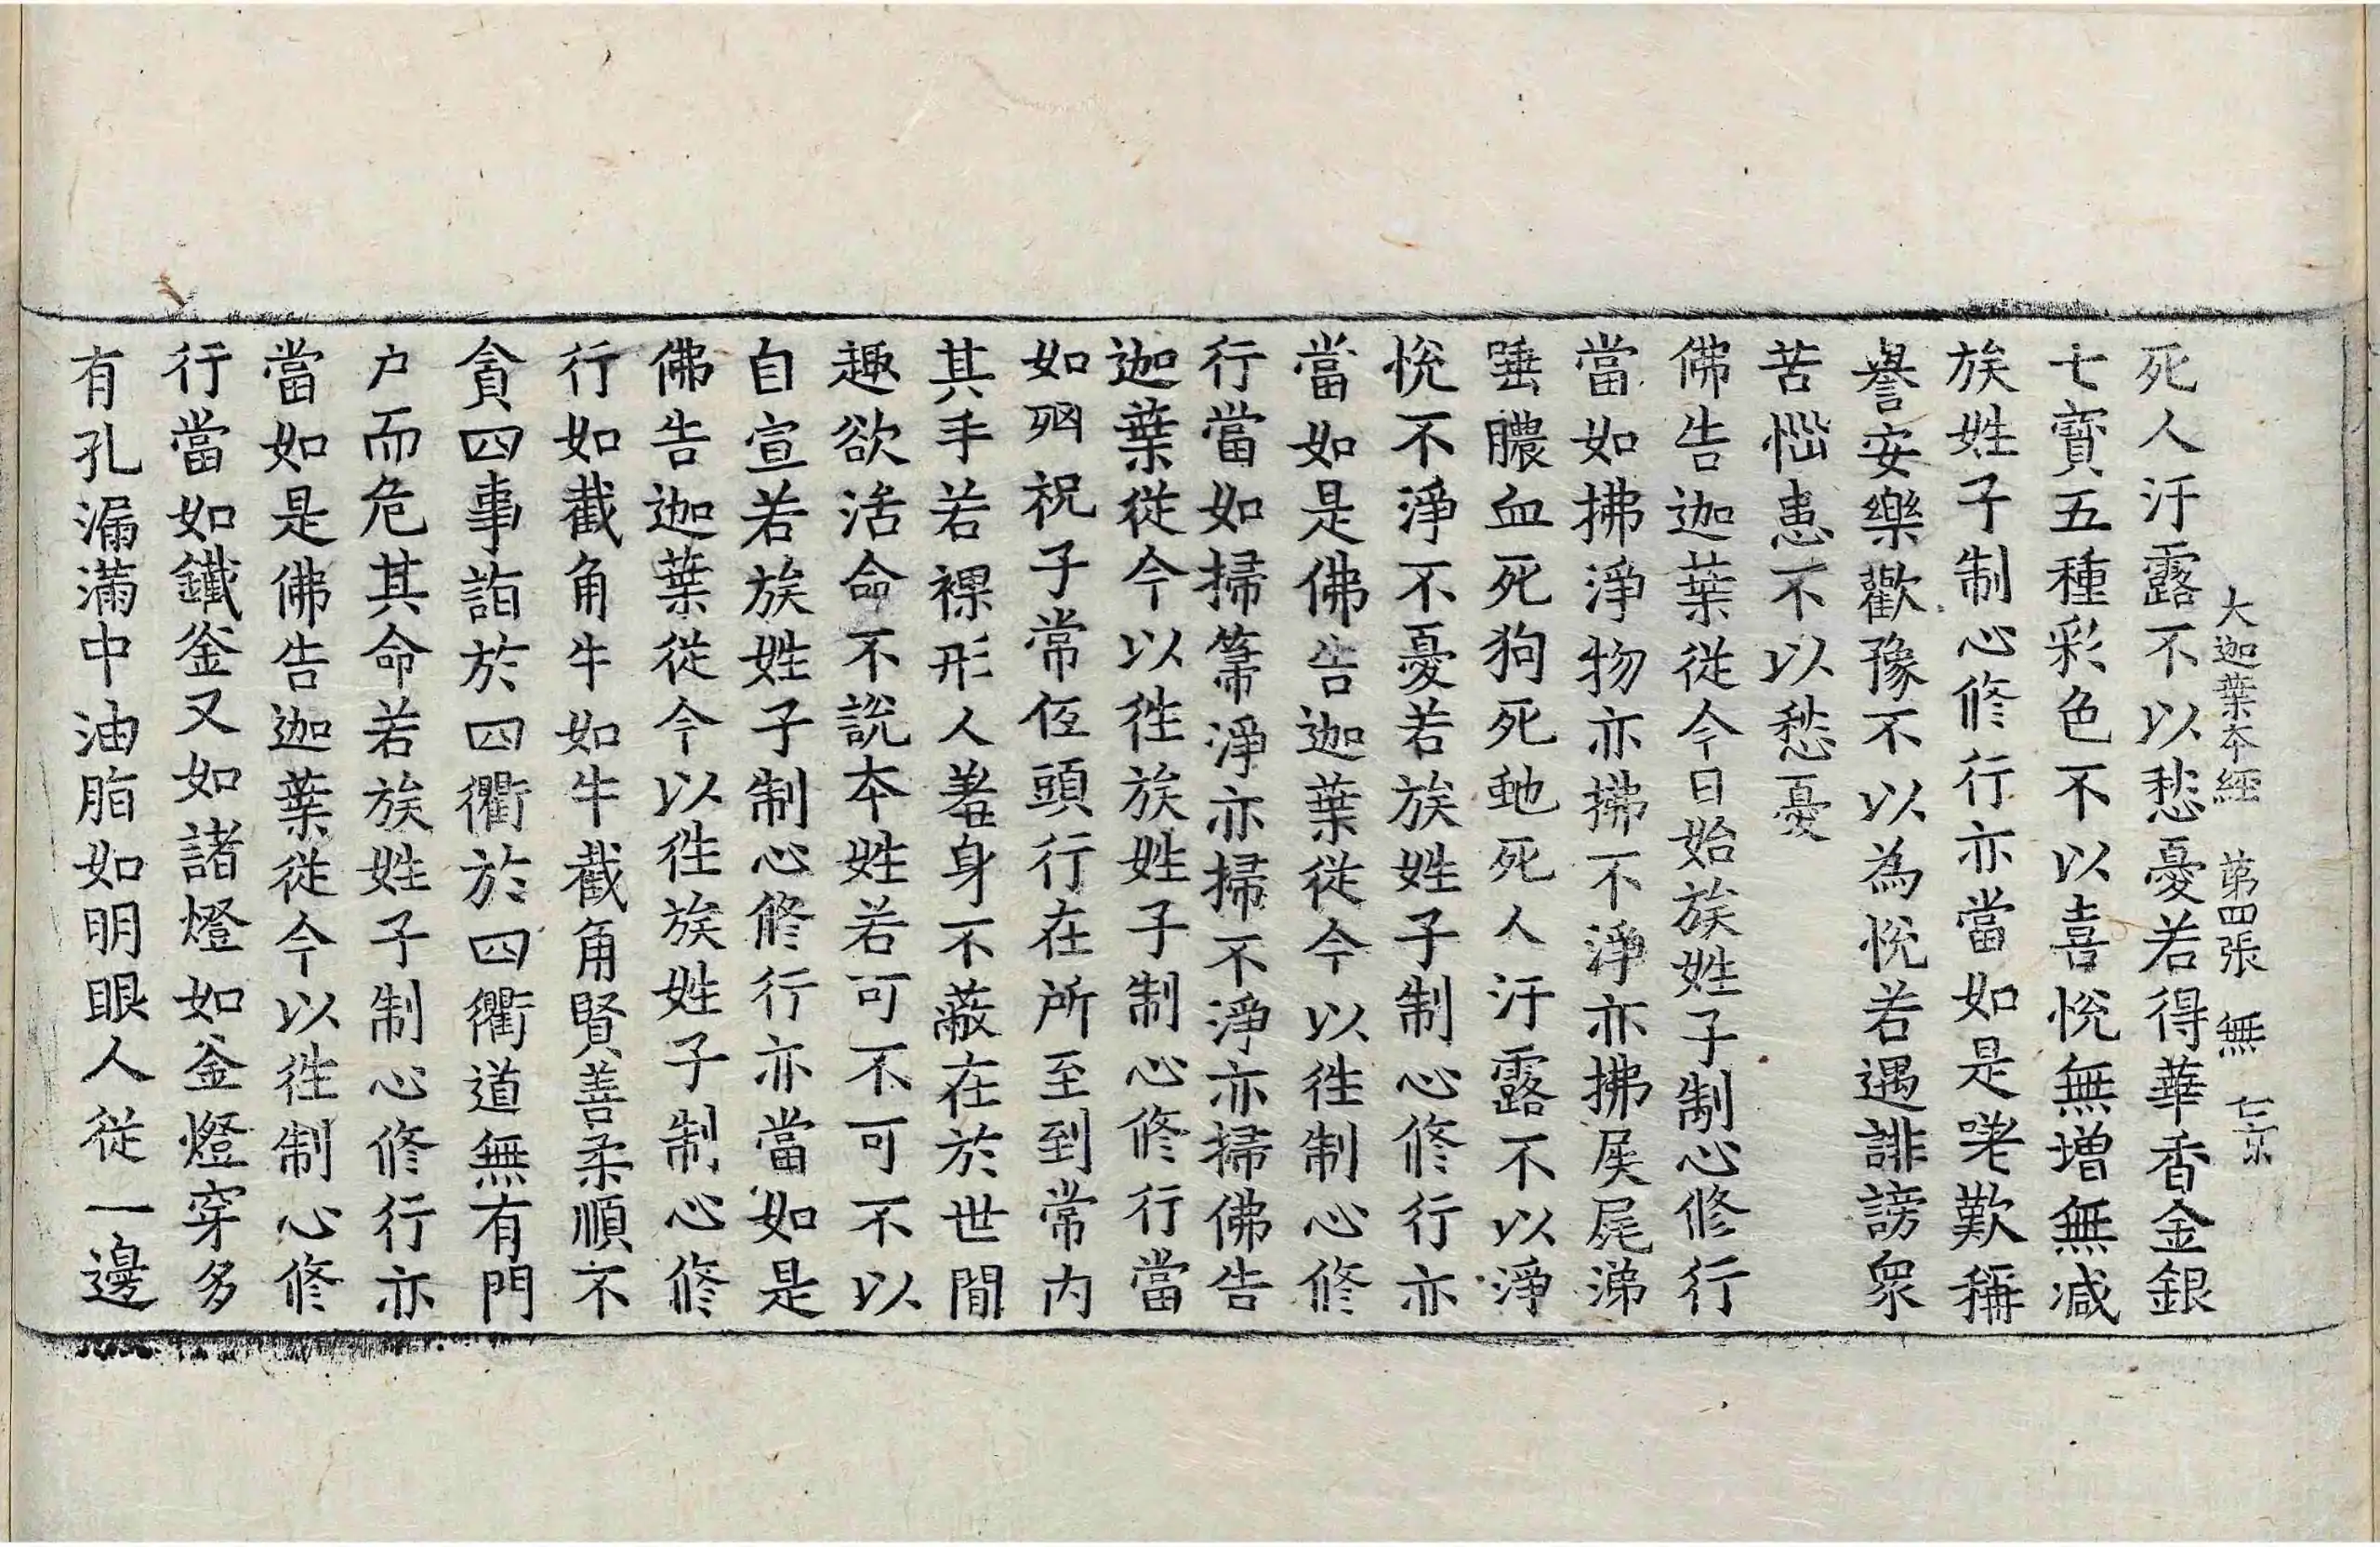 大迦葉本經 第四張 無 仁京
死人汙露不以愁憂若得華香金銀
七寶五種彩色不以喜悅無增無減
族姓子制心修行亦當如是咾歎稱
譽安樂歡豫不以為悅若遇誹謗衆
苦惱患不以愁憂
佛告迦葉從今日始族姓子制心修行
當如拂淨物亦拂不淨亦拂屎尾涕
唾膿血死狗死虵死人汙露不以淨
悅不淨不憂若族姓子制心修行亦
當如是佛告迦葉從今以徃制心修
行當如掃箒淨亦掃不淨亦掃佛告
迦葉從今以徃族姓子制心修行當
如祝子常低頭行在所至到常内
其手若裸形人羞身不蔽在於世間
趣欲活命不說本姓若可不可不以
自宣若族姓子制心修行亦當如是
佛告迦葉從今以徃族姓子制心修
行如截角牛如牛截角賢善柔順不
貪四事詣於四衢於四衢道無有門
户而危其命若族姓子制心修行亦
當如是佛告迦葉從今以徃制心修
行當如鐵釜又如諸燈如釜燈穿多
有孔漏滿中油脂如明眼人從一邊